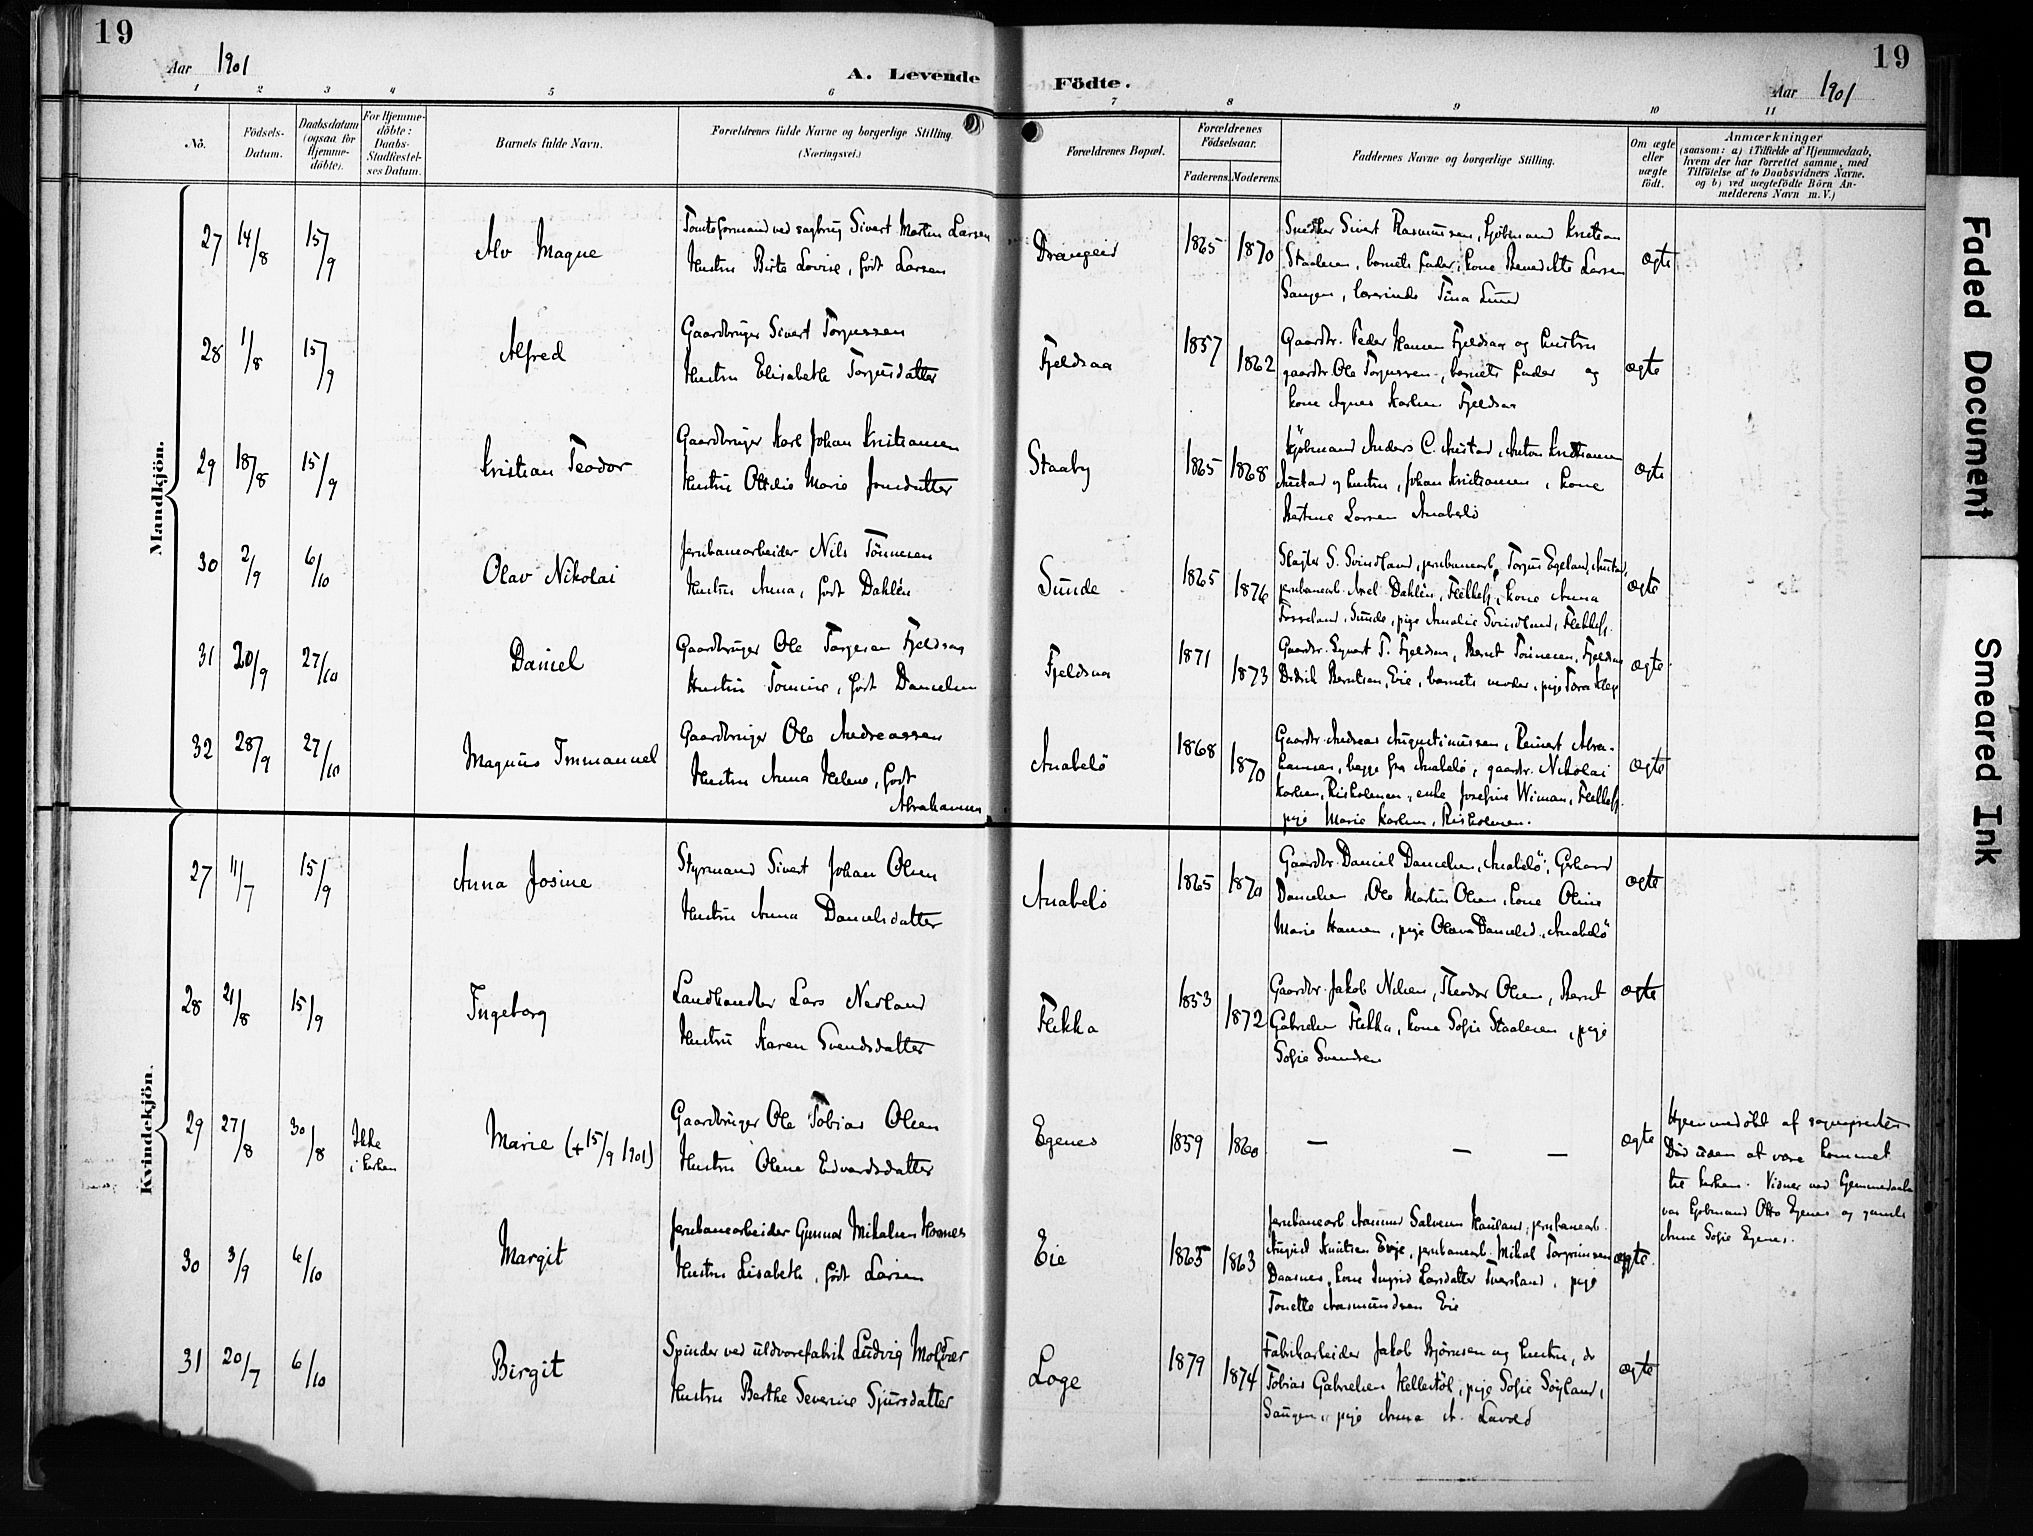 19
Aar 1901
A. Levende
Födte.
Aar 1901
19
1 2 3 4 5 6 7 8 9 10 11
Nö.
Födsels-
Datum.
Daabsdatum
(ogsaa for
Hjemme-
döbte).
For Hjemme-
döbte:
Daabs-
Stadfæstel-
ses Datum.
Barnets fulde Navn.
Forældrenes fulde Navne og borgerlige Stilling.
(Næringsvei.)
Forældrenes Bopæl.
Forældrenes
Födselsaar.
Faderens.
Moderens.
Faddernes Navne og borgerlige Stilling.
Om ægte
eller
uægte
födt.
Anmærkninger
(saasom: a) i Tilfælde af Hjemmedaab,
hvem der har forrettet samme, med
Tilföielse af to Daabsvidners Navne,
og b) ved uægtefödte Börn An-
melderens Navn m. V.)
Mandkjön.
27 14/8 15/9 Alv Magne
Tomteformand ved sagbrug Sivert Martin Larsen
Hustru Birte Lovise, født Larsen
Drangeid 1865 1870
Snedker Sivert Rasmussen, kjøbmand Kristian
Staalesen, barnets fader, kone Benedikte Larsen
Saugen, lærerinde Tina Lund
ægte
28 1/8 15/9 Alfred
Gaardbruger Sivert Torjussen
Hustru Elisabeth Torjusdatter
Fjeldsaa 1857 1862
Gaardbr. Peder Hansen Fjeldsaa og hustru
gaardbr. Ole Torjussen, barnets fader og
kone Agnes Karlsen Fjeldsaa
ægte
29 18/8 15/9 Kristian Teodor
Gaardbruger Karl Johan Kristiansen
Hustru Ottilie Marie Jonsdatter
Staaby 1865 1868
Kjøbmand Anders C. Austad, Anton Kristiansen
Austad og hustru, Johan Kristiansen, kone
Bertine Larsen Anabelø
ægte
30 2/9 6/10 Olav Nikolai
Jernbanearbeider Nils Tönnesen
Hustru Anna, født Dahlén
Sunde 1865 1876
Slagter S. Svindland, jernbanearb. Torjus Egeland, Austad,
jernbanearb. Axel Dahlén, Flekkefj., kone Anna
Fosseland, Sunde, pige Amalie Svindland, Flekkefj.
ægte
31 20/9 27/10 Daniel
Gaardbruger Ole Torjesen Fjeldsaa
Hustru Tomine, født Danielsen
Fjeldsaa 1871 1873
Gaardbr. Syvert T. Fjeldsaa, Bernt Tönnesen, Fjeldsaa
Didrik Berntsen, Eie, barnets moder, pige Tora
ægte
32 28/9 27/10 Magnus Immanuel
Gaardbruger Ole Andreassen
Hustru Anna Helene, født
Abrahamsen
Anabelö 1868 1870
Gaardbr. Andreas Augustinussen, Reinert Abra-
hamsen, begge fra Anabelø, gaardbr. Nikolai
Karlsen, Risholmen, enke Josefine Wiman, Flekkefj.
pige Marie Karlsen, Risholmen.
ægte
Kvindekjön.
27 11/7 15/9 Anna Josine
Styrmand Sivert Johan Olsen
Hustru Anna Danielsdatter
Anabelö 1865 1870
Gaardbr. Daniel Danielsen, Anabelö, Gerhard
Danielsen, Ole Martin Olsen, kone Oline
Marie Hansen, pige Olava Danielsd., Anabelö
ægte
28 21/8 15/9 Ingeborg
Landhandler Lars Nedland
Hustru Karen Svendsdatter
Flikka 1853 1872
Gaardbr. Jakob Nilsen, Theodor Olsen, Bernt
Gabrielsen Flikka, kone Sofie Staalesen, pige
Sofie Svendsen
ægte
29 27/8 30/8 Ikke
i kirken
Marie (+ 15/9 1901)
Gaardbruger Ole Tobias Olsen
Hustru Olene Edvardsdatter
Egenes 1859 1860
— — —
ægte
Hjemmedöbt af sognepresten
Død uden at være kommet
til kirken. Vidner ved hjemmedaaben
var kjøbmand Otto Egenes og
Anne Sofie Egenes.
30 3/9 6/10 Margit
Jernbanearbeider Gunnar Mikalsen Homnes
Hustru Lisabeth, født Larsen
Eie 1865 1863
Jernbanearb. Salvesen jernbanearb.
Knutsen Evje, jernbanearb. Mikal Torgrimsen
kone Ingrid Larsdatter pige
Tonette Aasmundsen Eie
ægte
31 20/7 6/10 Birgit
Spinder ved uldvarefabrik Ludvig Molvær
Hustru Berthe Severine Sjursdatter
Loge 1879 1874
Fabrikarbeider Jakob Bjørnsen og hustru, do
Tobias Gabrielsen Hellestöl, pige Sofie Söyland,
Saugen, pige Anna A. Lavold
ægte
Faded Document
Smeared Ink